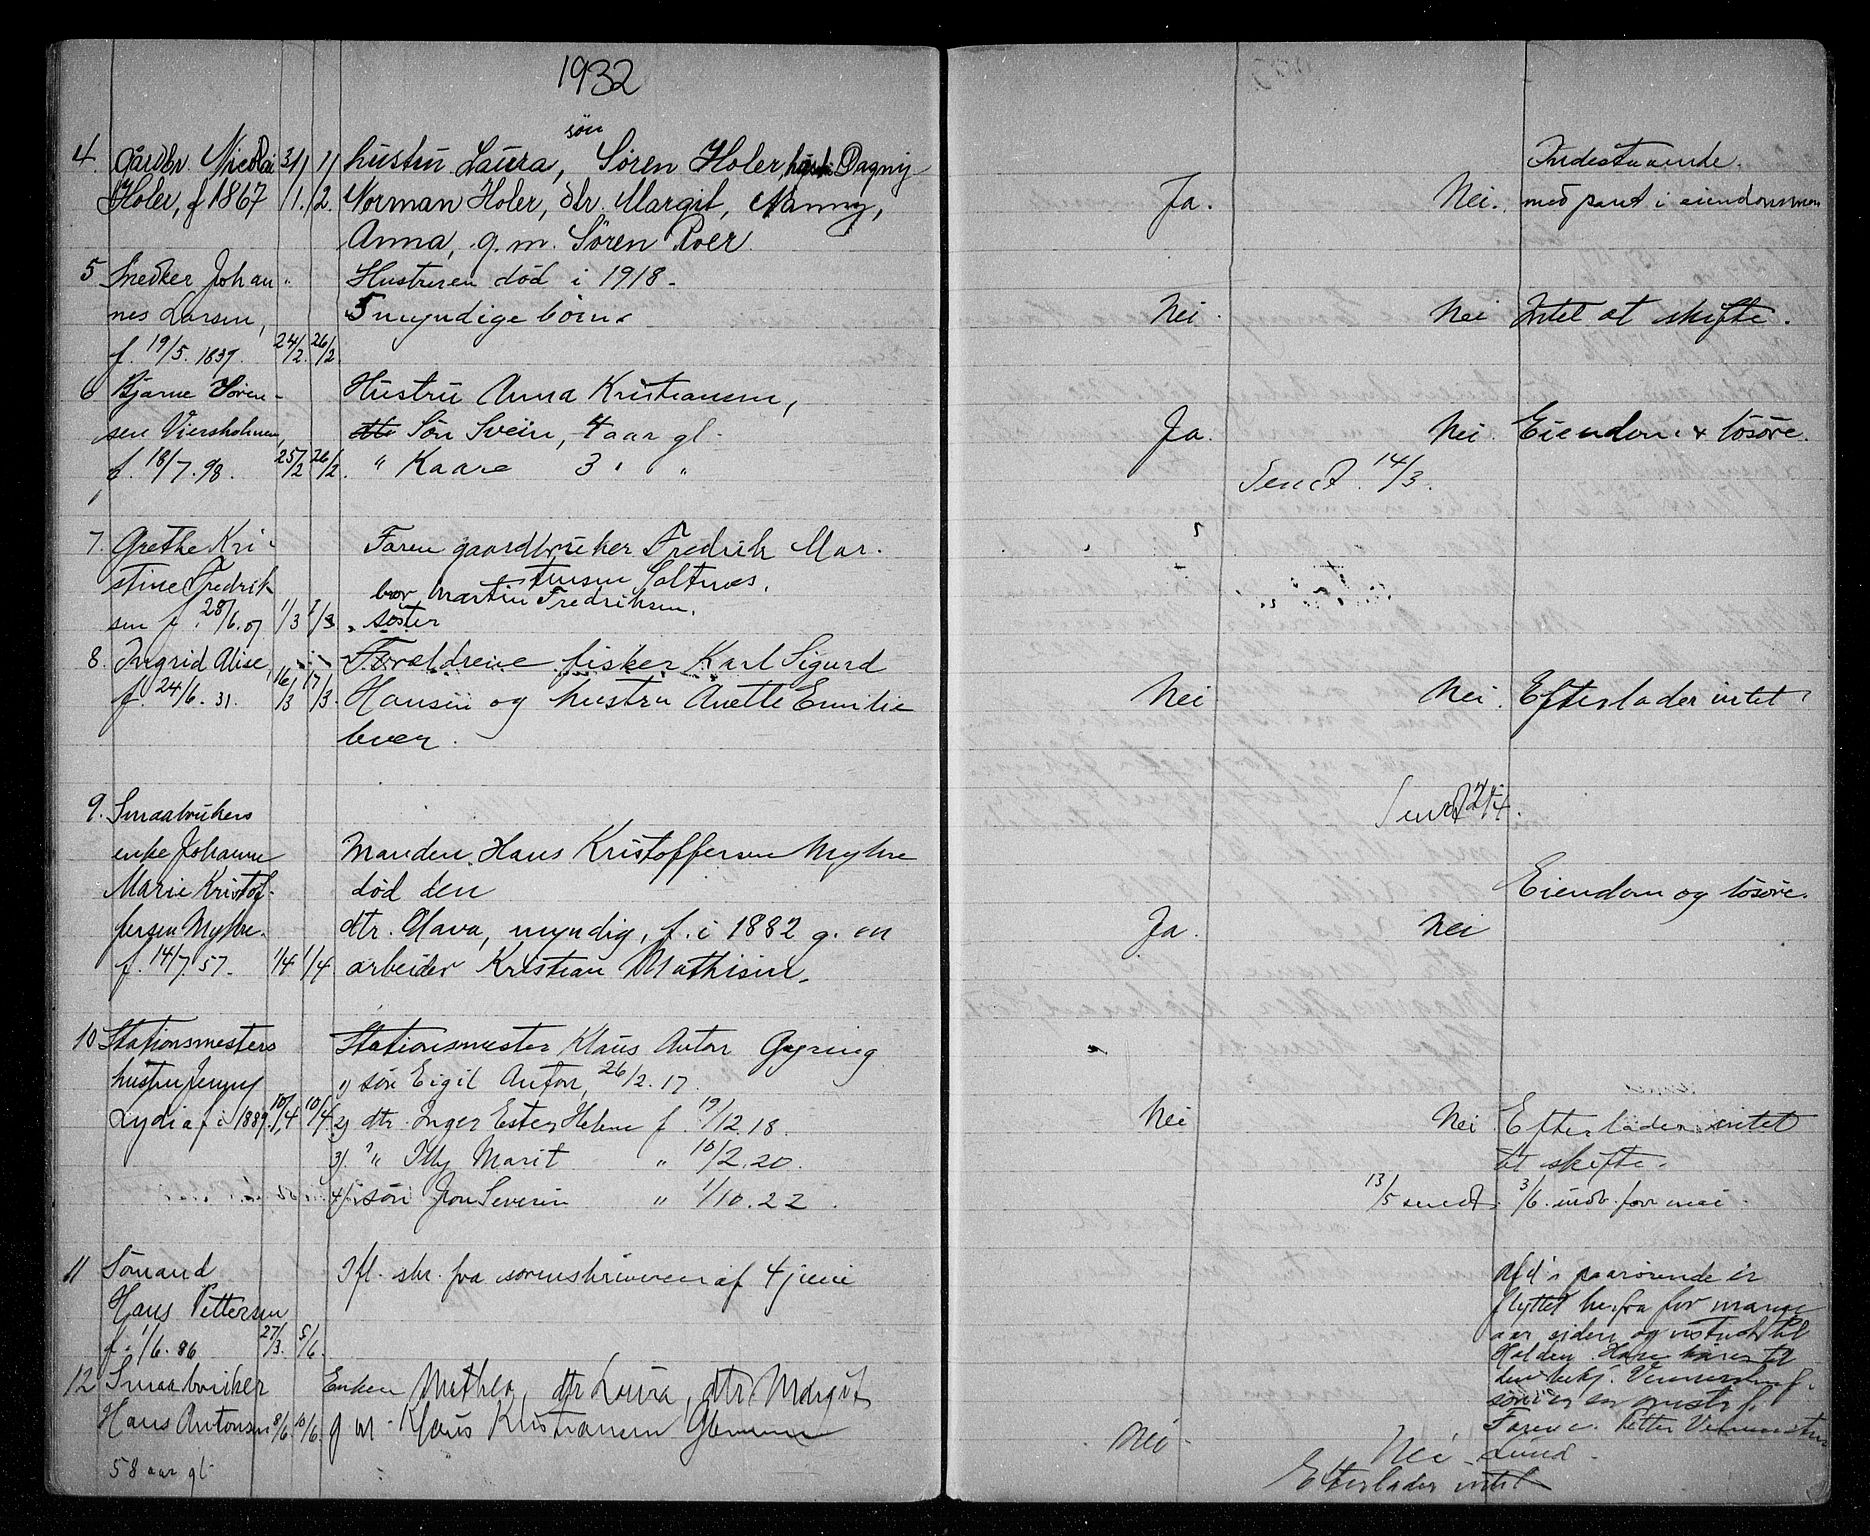 1932
søn
4. Gårdbr. Nicolai 31/ 1/ hustru Laura, Søren Holer, Dagny Indestaaende
Holer, f 1867 /1. /2. Norman Holer, dtr. Margit, Nanny, Ja. Nei. med pant i eiendommen
Anna, g. m. Søren Roer
5 Snedker Johan Hustruen död i 1918.
nes Larsen, 5 myndige börn. Nei. Nei Intet at skifte.
f. 19/5. 1837. 24/2. 26/2.
6 Bjarne Sören- Hustru Anna Kristiansen,
sen Viersholmen, Sön Svein, 4 aar gl. Ja. Nei. Eiendom & lösöre.
f. 18/7. 98. 25/2 26/2. " Kaare 3 " "
Sendt 14/3.
7. Grethe Kri- Faren gaardbruker Fredrik Mar-
stine Fredrik- tinsen Saltnes,
bror Martin Fredriksen.
sen f. 28/6. 07 1/3 1/3 söster
8. Ingrid Alise, Forældrene fisker Karl Sigurd
f. 24/6. 31. 16/3 17/3. Hansen og hustru Anette Emilie Nei Nei. Efterlader intet
bver.
9. Smaabrukers Sendt 21/4.
enke Johanne Manden Hans Kristoffersen Myhre
Marie Kristof- död den Eiendom og lösöre.
fersen Myhre. dtr. Olava, myndig, f. i 1882 g. m Ja. Nei
f. 14/7. 57. 1/4 1/4 arbeider Kristian Mathisen.
10 Stationsmesters Stationsmester Klaus Anton Gyring
hustru Jenny 1) sön Eigil Anton, 26/2. 17.
Lydia f i 1889. 10/4 10/4 2) dtr. Inger Ester Helene f. 19/12 18. Nei Nei. Efterlader intet
3). " Marit " 10/2. 20. at skifte.
4) sön Jon Severin " 1/10. 22. 13/5 sendt. 3/6. indb. for mai.
11 Sömand Ifl. skr. fra sorenskriveren af 4 juni Afd's paarörende er
Hans Pettersen flyttet herfra for mange
f. 1/6. 86 27/3. 5/6. aar siden og til
Halden.
12 Smaabruker Enken Mathea, dtr Laura, dtr. Margit
Hans Antonsen 8/6. 10/6. g m Klaus Kristiansen Nei. Faren e. Petter
58 aar gl. Nei lund.
Efterlader intet